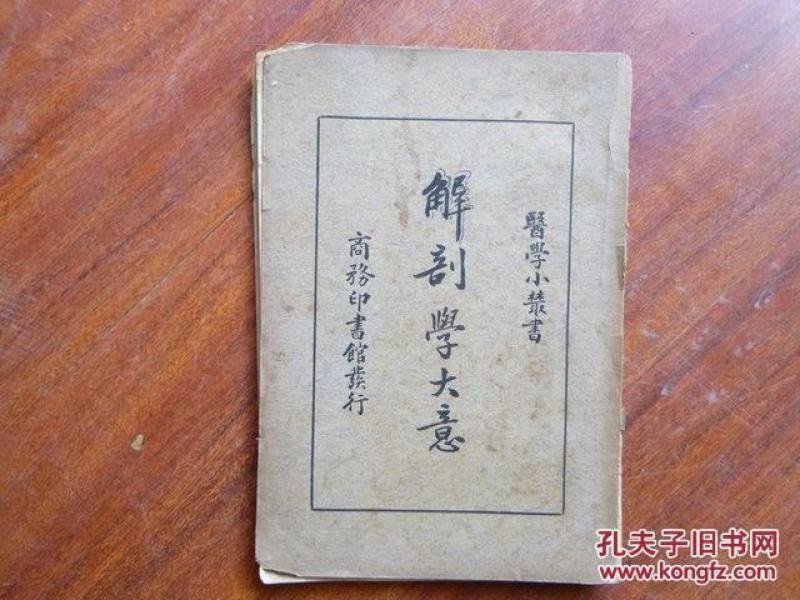 醫學小叢書
解剖學大意
商務印書館發行
孔夫子旧书网
www.kongfz.com